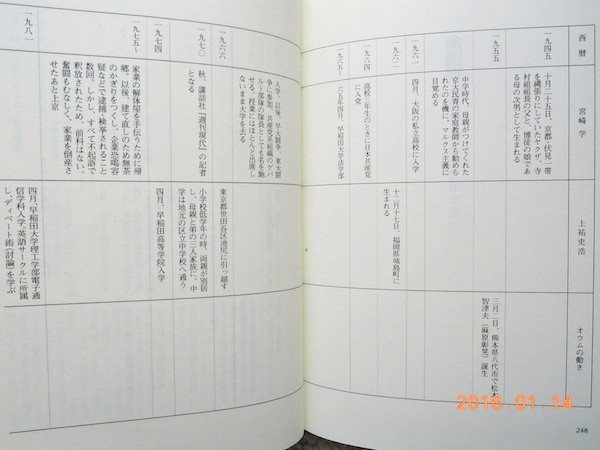 西暦
宮崎 学
上祐史浩
オウムの動き
一九四五
十月二十五日、京都・伏見一帯
を縄張りにしていたヤクザ、寺
村組組長の父と、博徒の娘であ
る母の次男として生まれる
一九五五
三月二日、熊本県八代市で松本
智津夫(麻原彰晃)誕生
中学時代、母親がつけてくれた
京大民青の家庭教師から勧めら
れたのを機に、マルクス主義に
目覚める
一九六二
四月、大阪の私立高校に入学
十二月十七日、福岡県城島町に
生まれる
高校三年生のときに日本共産党
に入党
一九六五〜
六五年四月、早稲田大学法学部
入学。以後、早大闘争、東大闘
争に参加。共産党系組織のゲバ
ルト部隊の隊長としても名を馳
せる。授業にはほとんど出席し
ないまま大学を去る
一九六六
東京都世田谷区池尻に引っ越す
一九七〇
秋、講談社「週刊現代」の記者
となる
小学校低学年の時、両親が別居
し、母親と弟の三人家族に。中
学は地元の区立中学校へ通う
一九七四
四月、早稲田高等学院入学
一九七五〜
家業の解体屋を手伝うために帰
郷。以後、建て直しのため無茶
のかぎりをつくし、企業恐喝容
疑などで逮捕・検挙されること
数回。しかし、すべて不起訴で
釈放されたため、前科はない。
奮闘もむなしく、家業を倒産さ
せたあと上京
一九八一
四月、早稲田大学理工学部電子通
信学科入学。英語サークルに所属
し、ディベート術(討論)を学ぶ
248
2016.01.14